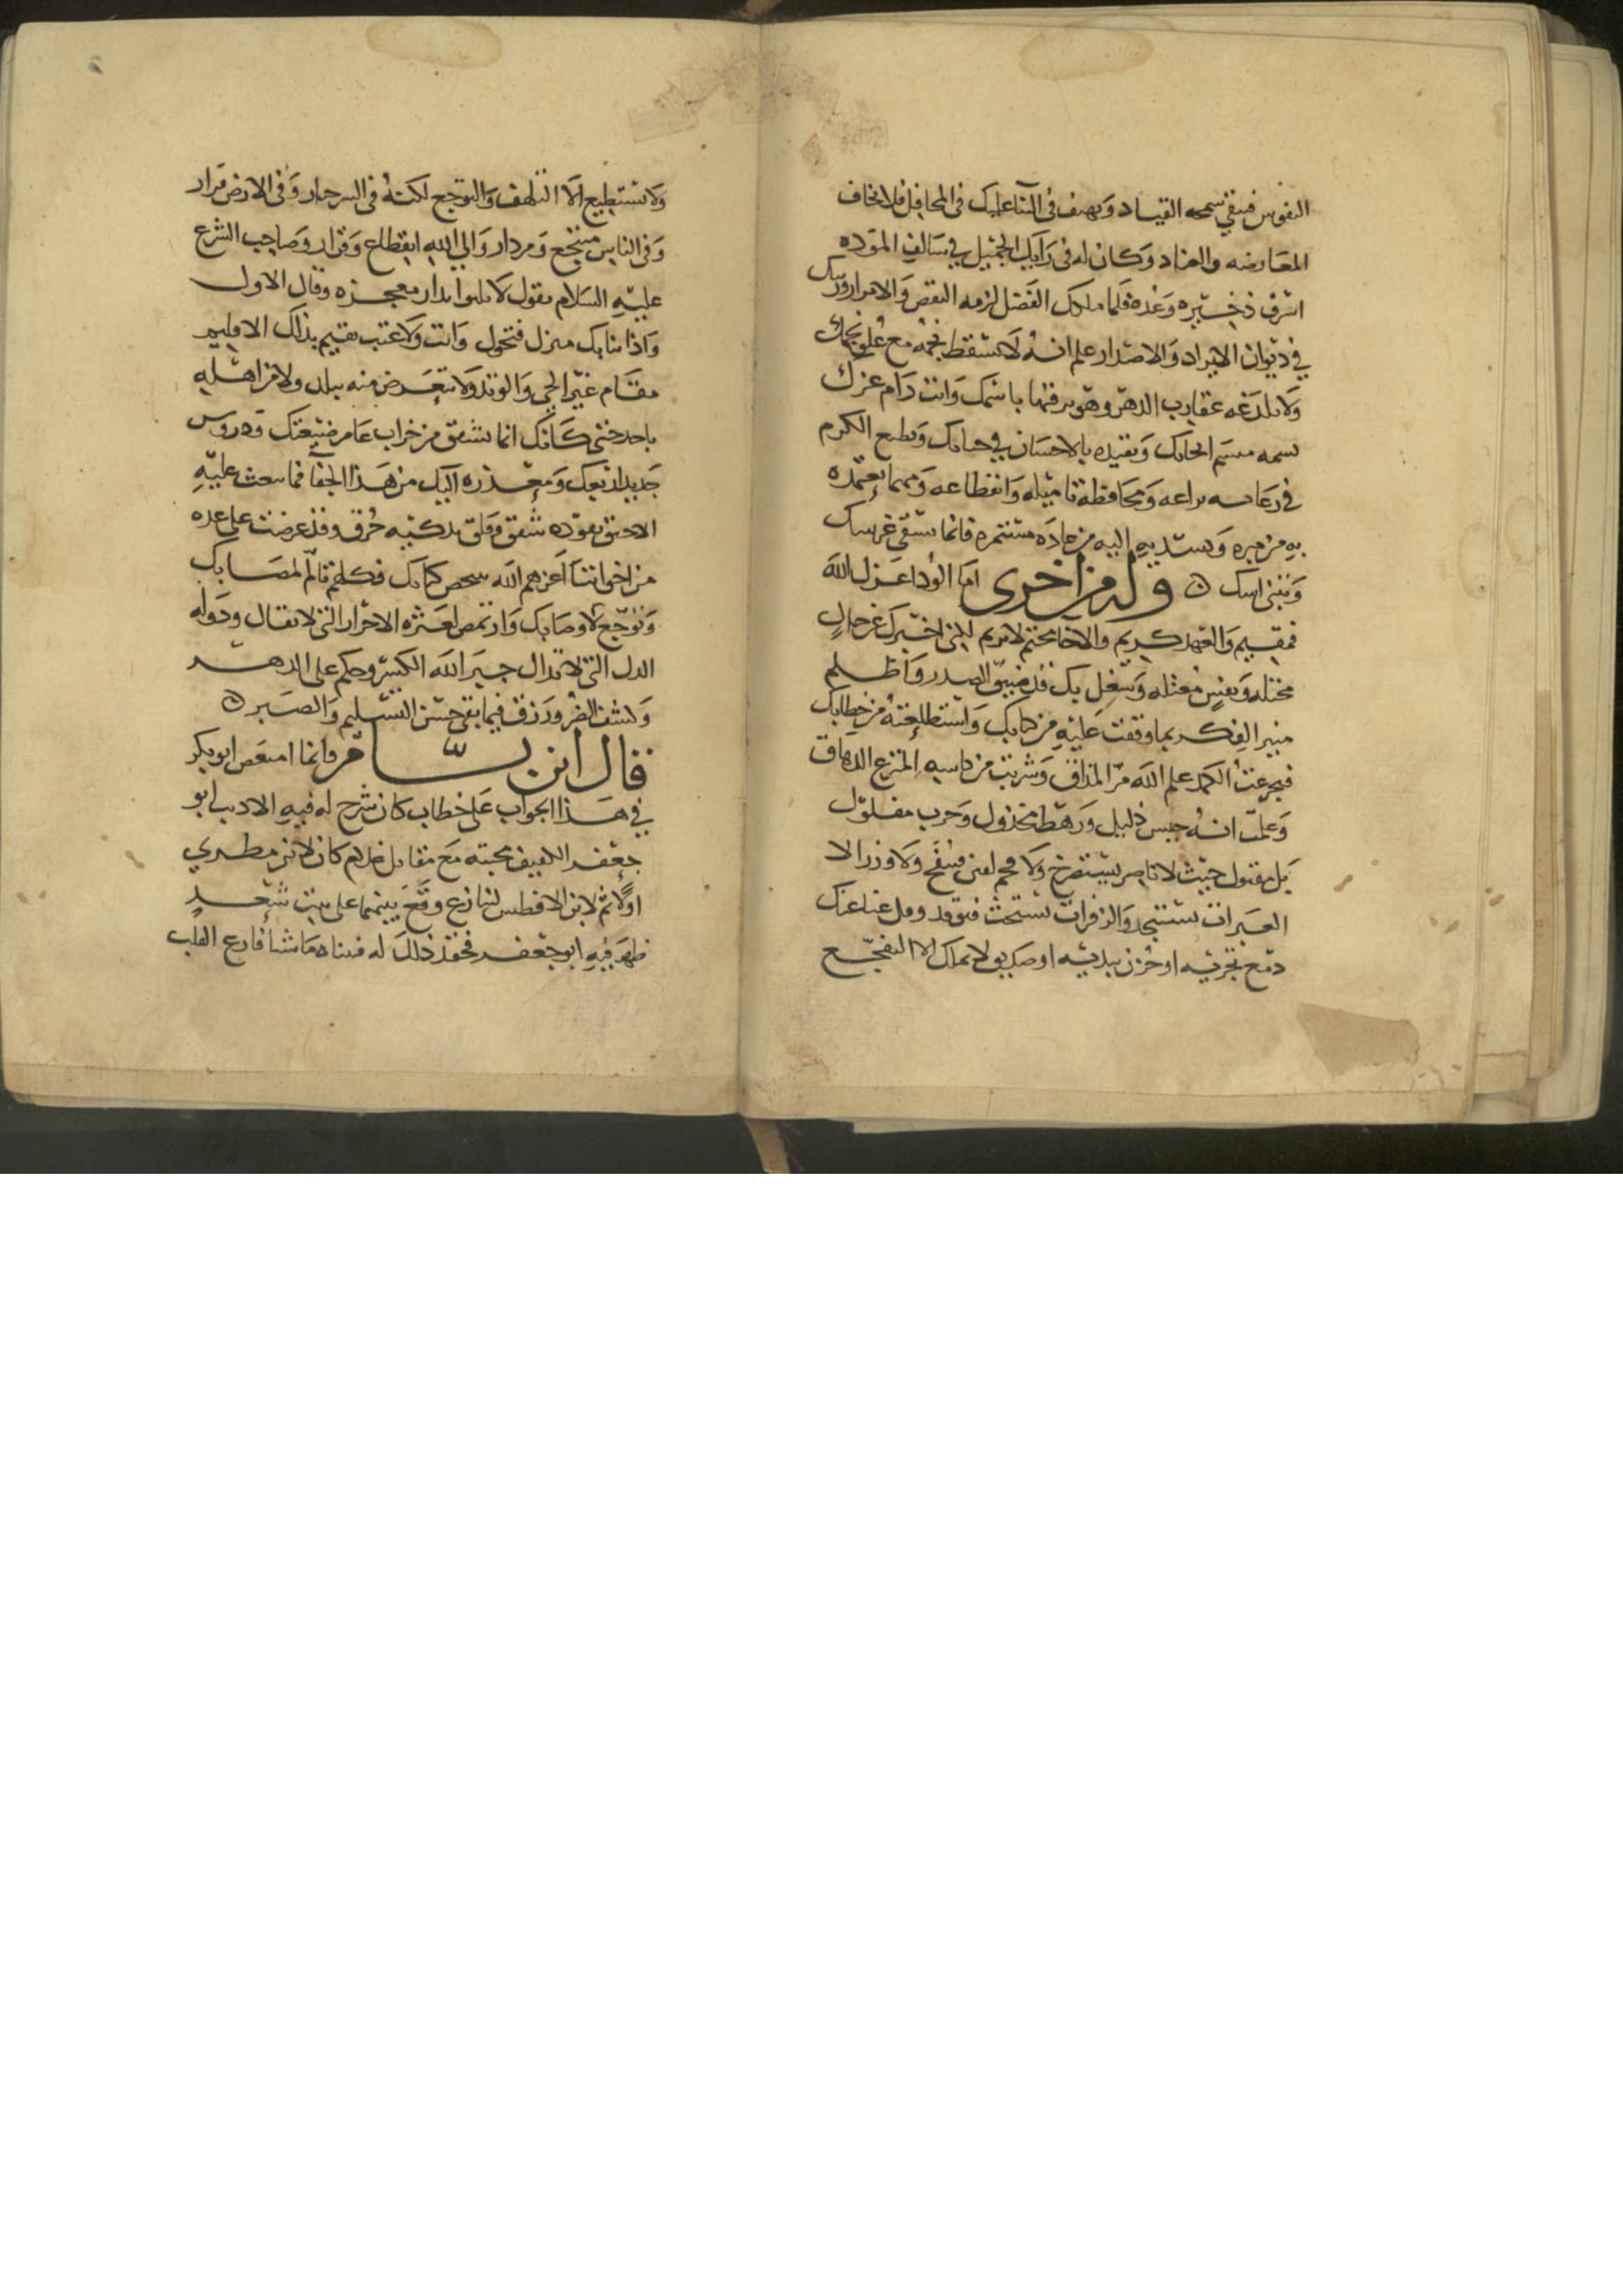 النفوس فتبقى سمحه القياد ويهتف في الثناء عليك في المحافل فلا يخاف
المعارضه والعناد وكان له في رأيك الجميل في سالف الموده
اشرف ذخيره وعده فلما ملكك الفضل لزمه النقض والامرار ورسمك
في ديوان الايراد والاصدار علم انه لا يسقط نجمه مع علو نجمك
ولا تلدغه عقارب الدهر وهو يرقيها باسمك وانت دام عزك
تسمه ميسم اخائك وتقيده بالاحسان في حبائك وبطبع الكرم
في رعايه نزاعه ومحافظة تاميله وانقطاعه ومهما تعتمده
به من مبره وتسديه اليه من جاده مستمره فانما تسقي غرسك
وتبني اسك ۞ وله من اخرى اما الود اعزك الله
فمقيم والعهد كريم والاخا محتم لا يريم لكني اخبرك عن حال
مختله ونفس معتله وشغل بك قد ضيق الصدر واظلم
منير الفكر بما وقفت عليه من كتابك واستطلعته من خطابك
فتجرعت الكمد علم الله مر المذاق وشربت من كاسه المترع الدهاق
وعلمت انه جيش ذليل ورهط مخذول وحرب مفلول
بل مقتول حيث لا ناصر يستصرخ ولا فحم لقين ينفخ ولا وزر الا
العبرات تستنجد والزفرات تستحث فتوقد وقل غنا عنك
دمع تجريه او حزن تبديه او صديق لا يملك الا التفجع
ولا تستطيع الا التلهف والتوجع لكنه في السرحار وفي الارض قرار
وفي الناس منتجع ومزدار والى الله انقطاع وفرار وصاحب الشرع
عليه السلام يقول لا تلبثوا بدار معجزه وقال الاول
واذا نبا بك منزل فتحول وانت ولا عتب تقيم بذلك الاقليم
مقام عير الحي والوتد ولا تتعرض منه ببلد ولا من اهله
باحد حتى كانك انما تشفق من خراب عامر ضيعتك ودروس
جديد اربعك ومعذره اليك من هذا الجفا فما بعث عليه
الا حنق يقوده شفق وقلق يذكيه حرق وقد عرضت على عده
من اخواننا اعزهم الله شخص كتابك فكلهم تالم لمصابك
وتوجع لاوصابك وارتمض لعثره الاحرار التي لا تقال ودوله
النذل التي لا تدال جبر الله الكسر وحكم على الدهر
وكشف الضر ورزق فيما بقي حسن التسليم والصبر ۞
قال ابن بسام وانما امتعض ابو بكر
في هذا الجواب على خطاب كان شرح له فيه الاديب ابو
جعفر اللفيف محبته مع مقاتل غلام كان لابن مطري
اولا ثم لابن الافطس لتنازع وقع بينهما على بيت شعر
ظهر فيه ابو جعفر فحقد ذلك له فتاه ما شا فارع القلب